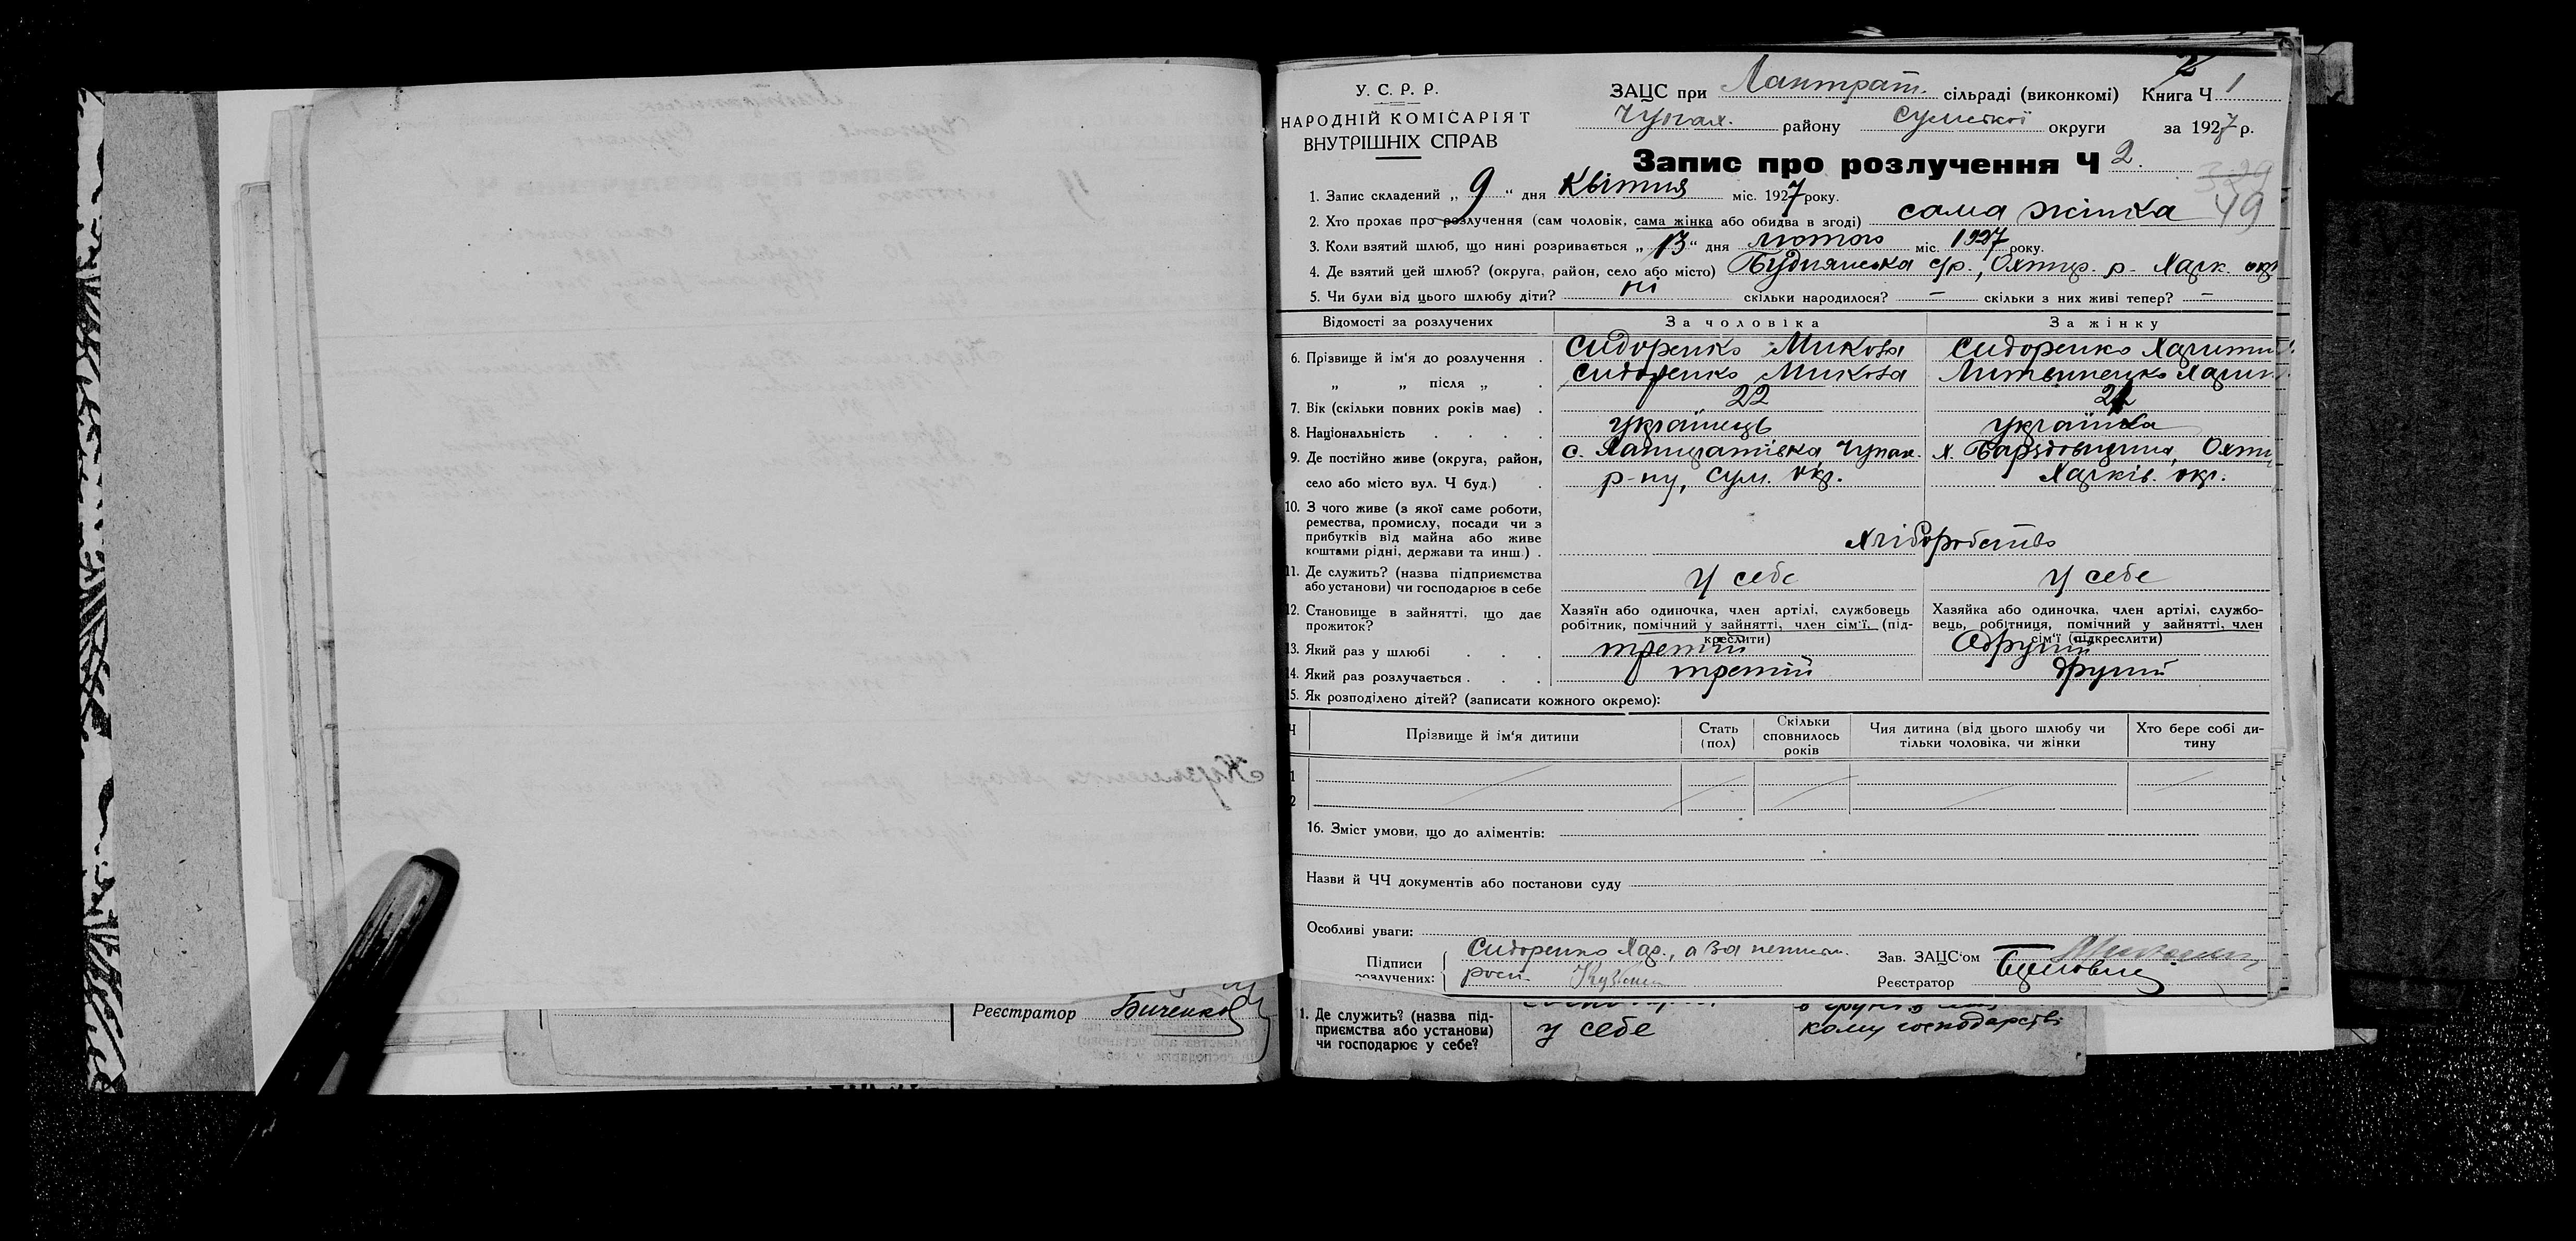 У. С. Р. Р.
НАРОДНІЙ КОМІСАРІЯТ
ВНУТРІШНІХ СПРАВ
ЗАЦС при Лантрат. сільраді (виконкомі) Книга Ч 1
Чупах. району Сумської округи за 1927 р.
Запис про розлучення Ч 2.
329
49
1. Запис складений „ 9 “ дня Квітня міс. 1927 року.
2. Хто прохає про розлучення (сам чоловік, сама жінка або обидва в згоді) сама жінка
3. Коли взятий шлюб, що нині розривається „ 13 “ дня лютого міс. 1927 року.
4. Де взятий цей шлюб? (округа, район, село або місто) Буднянська с/р., Охтир. р- Харк. окр
5. Чи були від цього шлюбу діти? ні скільки народилося? — скільки з них живі тепер? —
Відомості за розлучених За чоловіка За жінку
6. Прізвище й ім'я до розлучення . Сидоренко Микола Сидоренко Харитин
„ „ після „ . Сидоренко Микола Литвиненко Харит.
7. Вік (скільки повних років має) . 22
8. Національність . . . . українець українка
9. Де постійно живе (округа, район, с. Лантратівка Чупах. х. Охти
село або місто вул. Ч буд.) . р-ну, Сум. окр. Харків. окр.
10. З чого живе (з якої саме роботи,
ремества, промислу, посади чи з
прибутків від майна або живе
коштами рідні, держави та инш.) . хліборобство
11. Де служить? (назва підприємства
або установи) чи господарює в себе У себе У себе
12. Становище в зайнятті, що дає
прожиток?
Хазяїн або одиночка, член артілі, службовець
робітник, помічний у зайнятті, член сім'ї. (під-
креслити)
Хазяйка або одиночка, член артілі, службо-
вець, робітниця, помічний у зайнятті, член
сім'ї (підкреслити)
13. Який раз у шлюбі . . . третій другий
14. Який раз розлучається . . . третій другий
15. Як розподілено дітей? (записати кожного окремо):
Ч Прізвище й ім'я дитини Стать (пол) Скільки сповнилось років Чия дитина (від цього шлюбу чи тільки чоловіка, чи жінки Хто бере собі ди-тину
1
2
16. Зміст умови, що до аліментів:
Назви й ЧЧ документів або постанови суду
Особливі уваги:
Підписи розлучених: Сидоренко Хар., а за неписм.
росп.
Зав. ЗАЦС'ом
Реєстратор
Реєстратор Биченков
1. Де служить? (назва під-
приємства або установи)
чи господарює у себе?
у себе
кому господарстві